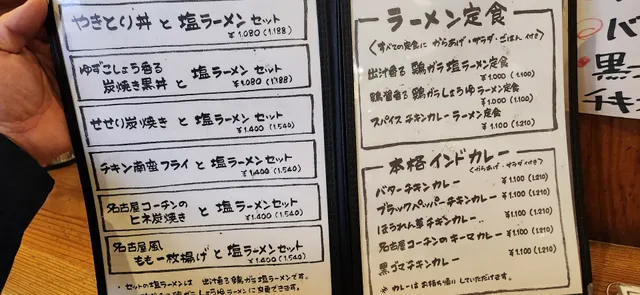 やきとり丼 と 塩ラーメン セット
¥1,080 (1,188)
ゆずこしょう香る
炭焼き黒丼 と 塩ラーメン セット
¥1,080 (1,188)
せせり炭焼き と 塩ラーメン セット
¥1,400 (1,540)
チキン南蛮フライ と 塩ラーメン セット
¥1,400 (1,540)
名古屋コーチンの
ヒネ炭焼き と 塩ラーメン セット
¥1,400 (1,540)
名古屋風
もも一枚揚げ と 塩ラーメン セット
¥1,400 (1,540)
・セットの塩ラーメンは 出汁香る 鶏ガラ塩ラーメンです。
鶏ガラしょうゆラーメンに変更できます。
ラーメン定食
〈すべての定食に からあげ・サラダ・ごはん 付き〉
出汁香る 鶏ガラ 塩ラーメン定食
¥1,000 (1,100)
鶏ガラしょうゆラーメン定食
¥1,000 (1,100)
スパイス チキンカレーラーメン定食
¥1,100 (1,210)
本格インドカレー
〈からあげ・サラダ付き〉
バターチキンカレー ¥1,100 (1,210)
ブラックペッパーチキンカレー ¥1,100 (1,210)
ほうれん草チキンカレー ¥1,100 (1,210)
名古屋コーチンのキーマカレー ¥1,100 (1,210)
黒ゴマチキンカレー ¥1,100 (1,210)
※ カレーはお持ち帰りしていただけます。
黒
チキ